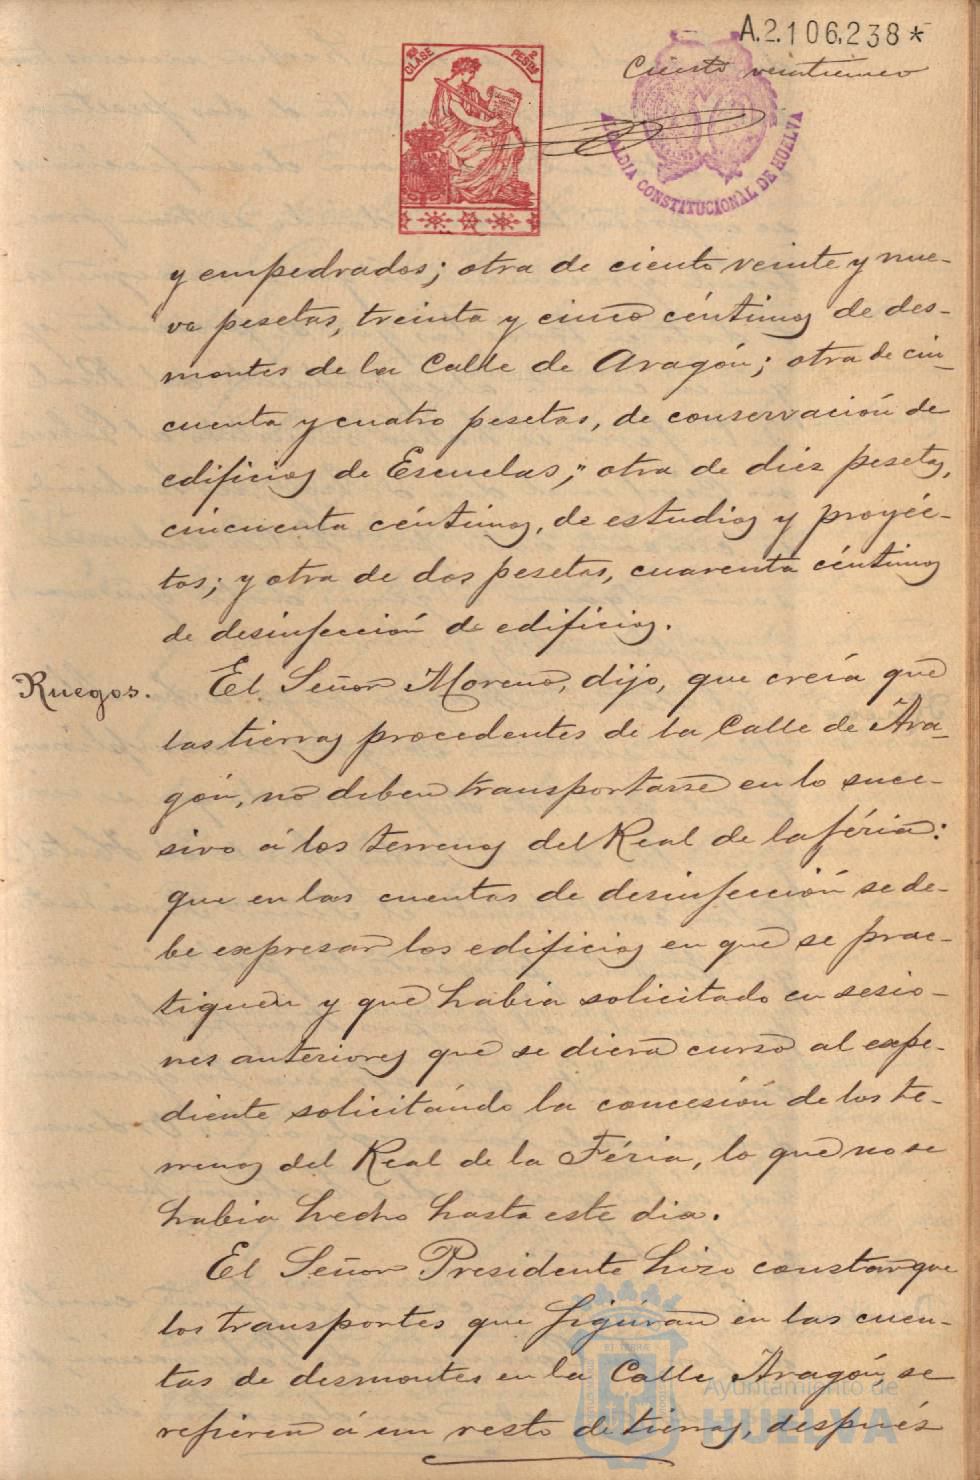 A.2.106.238*
Ciento veinticinco
10ª CLASE
2 PESTAS
ALCALDIA CONSTITUCIONAL DE HUELVA
y empedrados; otra de ciento veinte y nue-
ve pesetas, treinta y cinco céntimos de des-
montes de la Calle de Aragón; otra de cin-
cuenta y cuatro pesetas, de conservación de
edificios de Escuelas; otra de diez pesetas,
cincuenta céntimos, de estudios y proyéc-
tos; y otra de dos pesetas, cuarenta céntimos
de desinfección de edificios.
Ruegos.
El Señor Moreno, dijo, que creía que
las tierras procedentes de la Calle de Ara-
gón, no deben transportarse en lo suce-
sivo á los terrenos del Real de la féria:
que en las cuentas de desinfección se de-
be expresar los edificios en que se prac-
tiquen y que habia solicitado en sesio-
nes anteriores que se diera curso al expe-
diente solicitándo la concesión de los te-
rrenos del Real de la Féria, lo que no se
habia hecho hasta este dia.
El Señor Presidente hizo constar que
los transportes que figuran en las cuen-
tas de desmontes en la Calle Aragón, se
refieren á un resto de tierras, después
Ayuntamiento de
HUELVA